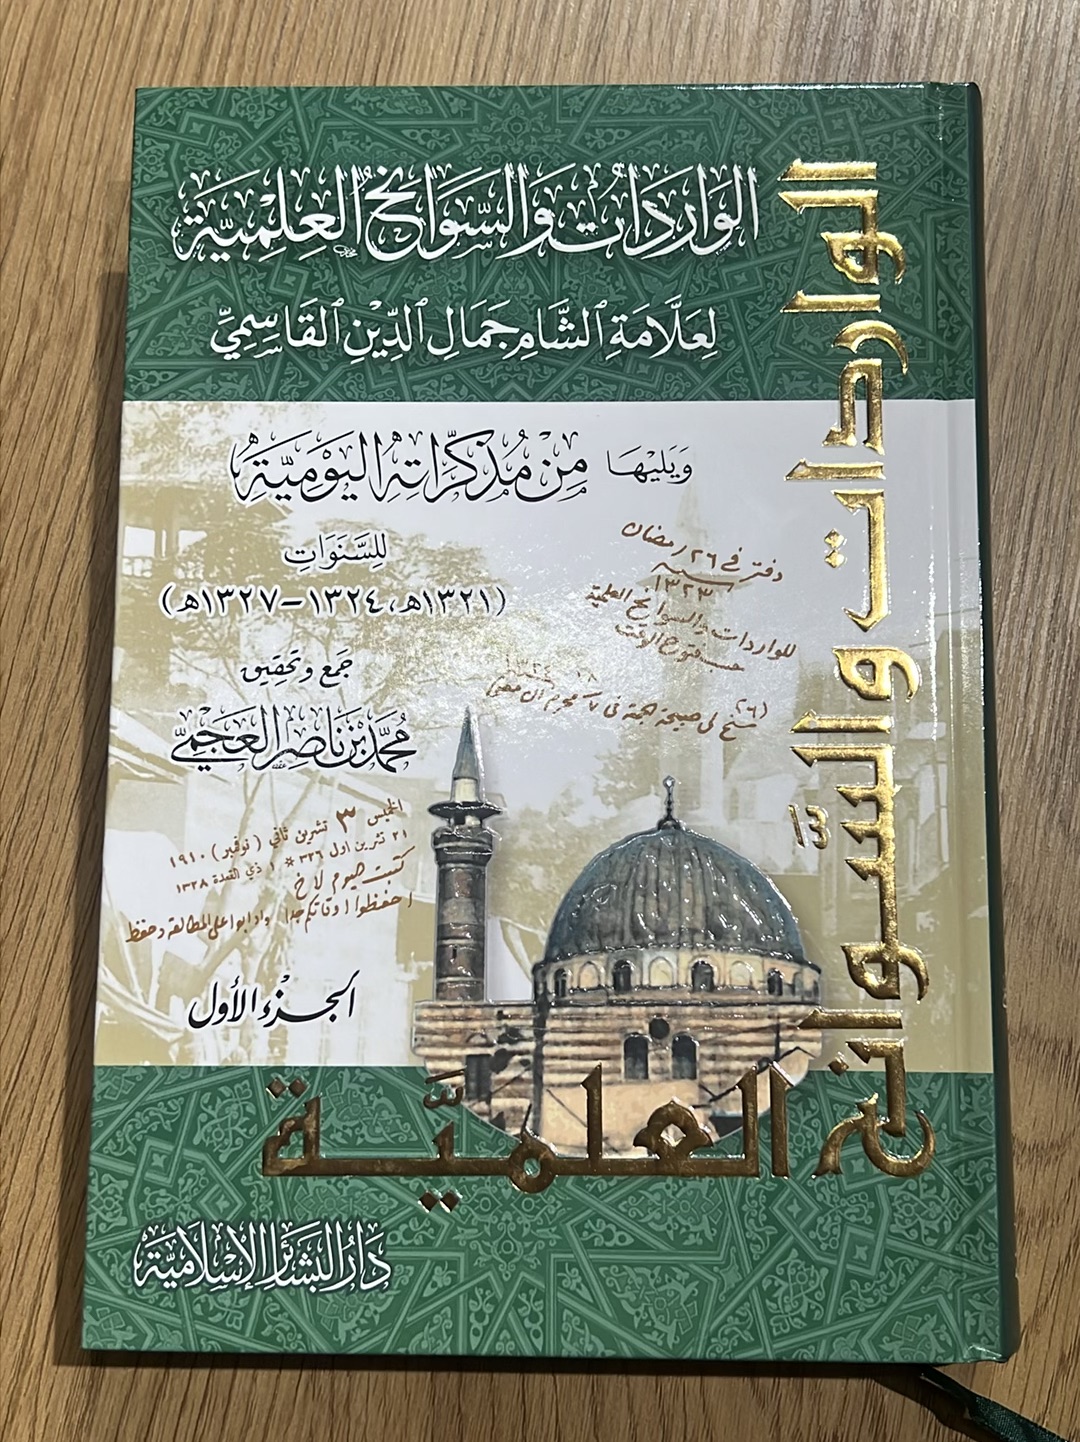 الوَارِدَاتُ وَالسَّوَانِحُ العِلْمِيَّةُ
لِعَلَّامَةِ الشَّامِ جَمَالِ الدِّينِ القَاسِمِيِّ
وَيَلِيهَا مِنْ مُذَكِّرَاتِهِ اليَوْمِيَّةِ
لِلسَّنَوَاتِ
(١٣٢١هـ، ١٣٢٤-١٣٢٧هـ)
جَمْع وَتَحْقِيق
مُحَمَّد بْن نَاصِر العَجْمِيّ
دفتر في ٢٦ رمضان
سنة ١٣٢٣
للواردات والسوانح العلمية
حسب فتوح الوقت
الخميس ٣ تشرين ثاني (نوفمبر) ١٩١٠
٢١ تشرين اول ٣٢٦ * ١ ذي القعدة ١٣٢٨
احفظوا اوقاتكم جدا وادابوا على المطالعة وحفظ
الجُزْء الأَوّل
الواردات والسّوانح
العلميّة
دَارُ البَشَائِرِ الإِسْلَامِيَّة